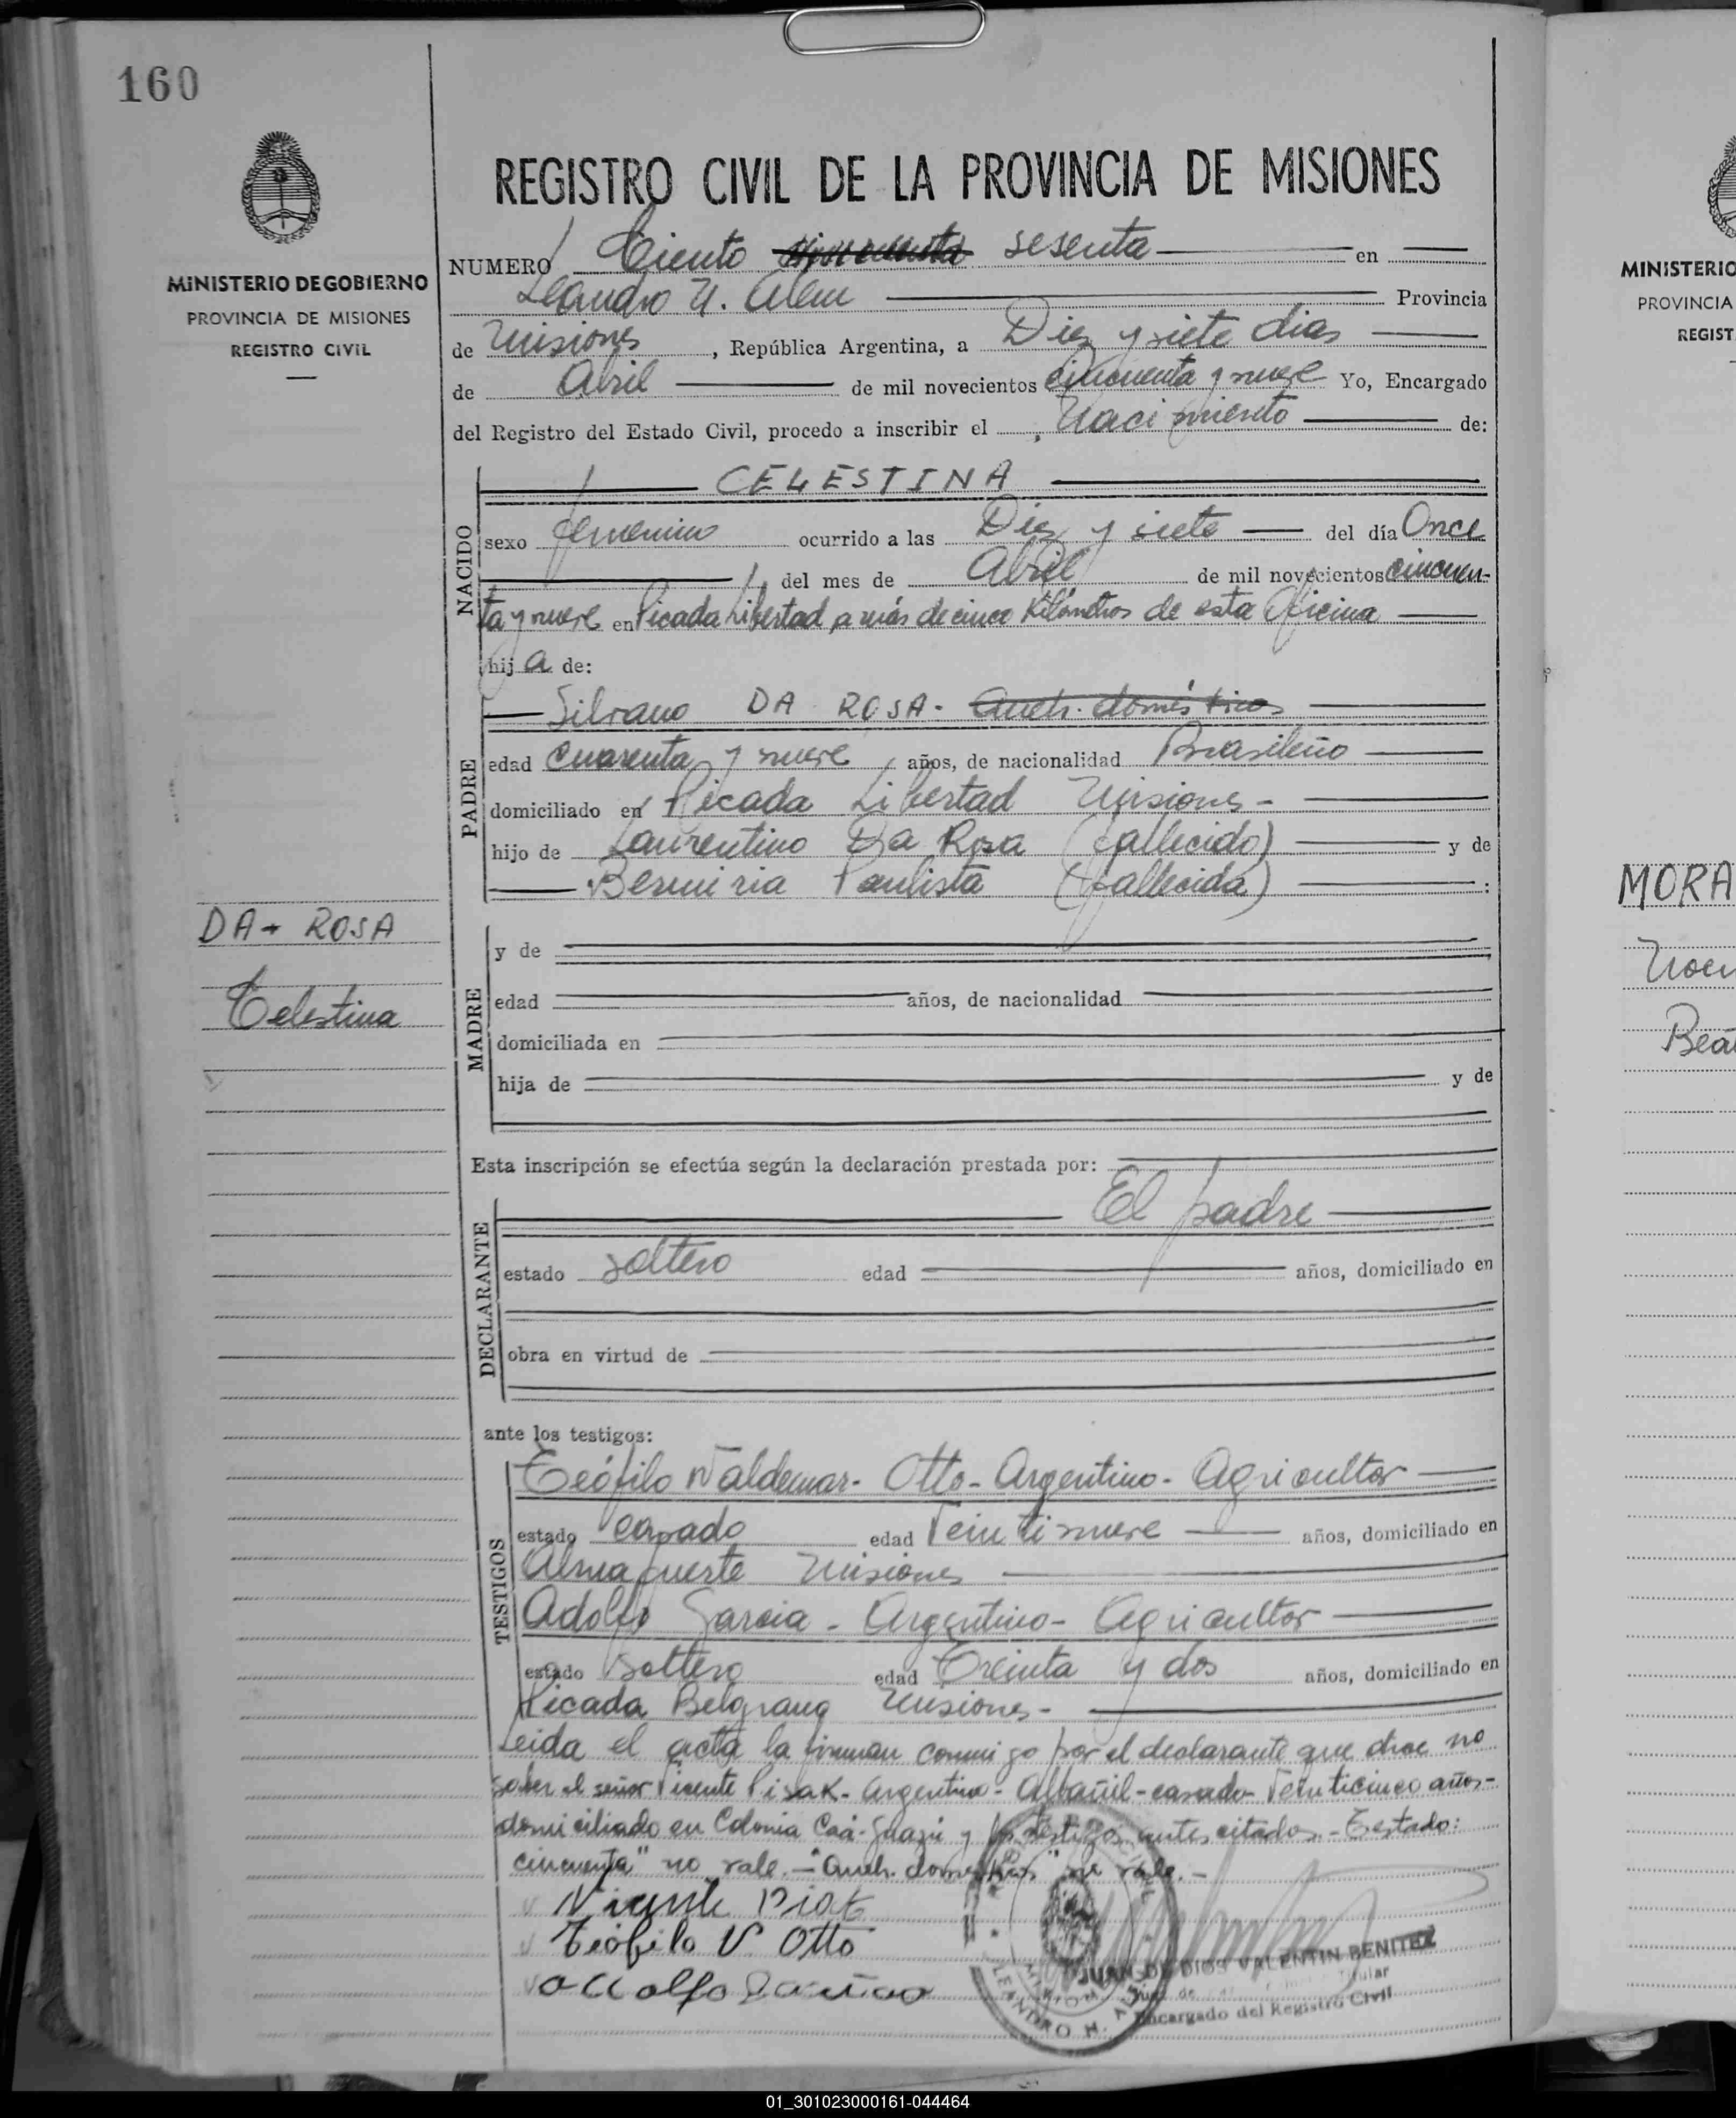 160
MINISTERIO DE GOBIERNO
PROVINCIA DE MISIONES
REGISTRO CIVIL
DA - ROSA
Celestina
REGISTRO CIVIL DE LA PROVINCIA DE MISIONES
NUMERO Ciento cincuenta sesenta en
Leandro N. Alem Provincia
de Misiones, República Argentina, a Diez y siete dias
de Abril de mil novecientos cincuenta y nueve Yo, Encargado
del Registro del Estado Civil, procedo a inscribir el Nacimiento de:
NACIDO
CELESTINA
sexo femenino ocurrido a las Diez y siete del día Once
del mes de Abril de mil novecientos cincuen-
ta y nueve en Picada Libertad a más de cinco Kilómetros de esta Oficina
hija de:
PADRE
Silvano DA ROSA. Queh. domésticos
edad cuarenta y nueve años, de nacionalidad Brasileño
domiciliado en Picada Libertad Misiones -
hijo de Laurentino Da Rosa (fallecido) y de
Paulista (fallecida) :
MADRE
y de
edad años, de nacionalidad
domiciliada en
hija de y de
Esta inscripción se efectúa según la declaración prestada por:
DECLARANTE
El padre
estado soltero edad años, domiciliado en
obra en virtud de
ante los testigos:
TESTIGOS
Teófilo Valdemar - Otto - Argentino - Agricultor
estado casado edad Veintinueve años, domiciliado en
Almafuerte Misiones
Adolfo Garcia - Argentino - Agricultor
estado soltero edad Treinta y dos años, domiciliado en
Picada Belgrano Misiones -
Leida el acta la firman conmigo por el declarante que dice no
saber el señor Vicente Pisak - Argentino - Albañil - casado - Veinticinco años -
domiciliado en Colonia Caá-Guazú y los testigos antes citados - Testado:
cincuenta" no vale. - "Queh. domésticos" no vale. -
Vicente
Teófilo V Otto
Adolfo
LEANDRO N. ALEM
JUAN DE DIOS VALENTIN BENITEZ
Titular
Encargado del Registro Civil
MINISTERIO
PROVINCIA
REGIST
MORA
Bea
01_301023000161-044464